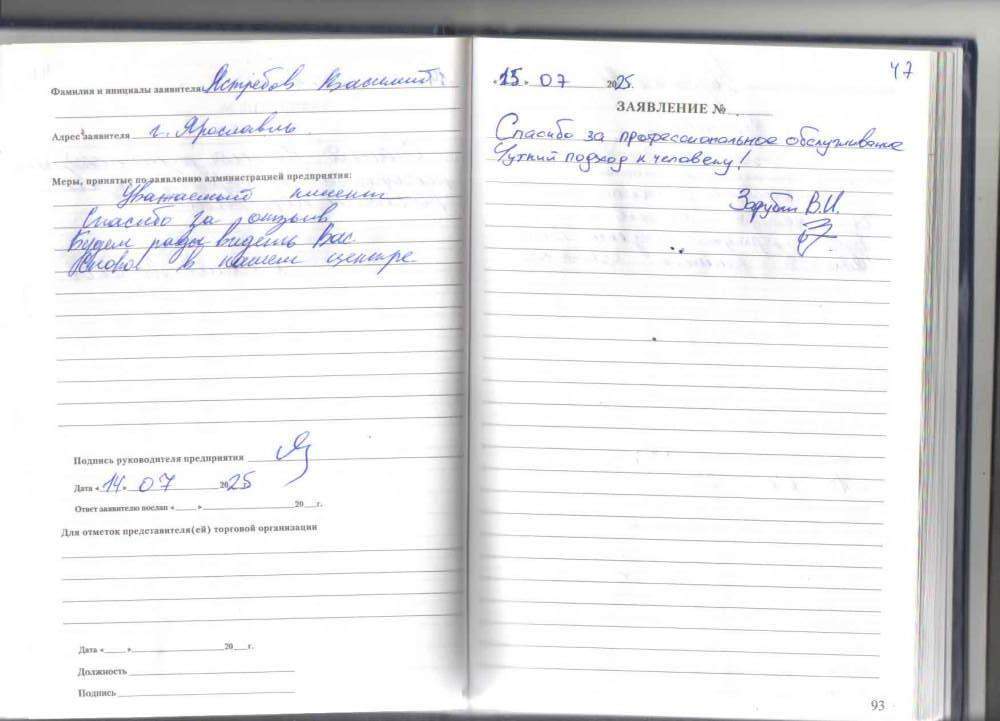 Фамилия и инициалы заявителя: Ястребов Василий
Адрес заявителя г. Ярославль
Меры, принятые по заявлению администрацией предприятия:
Уважаемый клиент
Спасибо за отзыв
Будем рады видеть Вас.
Снова в нашем центре.
Подпись руководителя предприятия
Дата «14» 07 2025
Ответ заявителю послан «____» ____ 20__г.
Для отметок представителя(ей) торговой организации
Дата «____» ____ 20__г.
Должность
Подпись
47
15. 07 2025.
ЗАЯВЛЕНИЕ №
Спасибо за профессиональное обслуживание
Чуткий подход к человеку!
Зарубин В.И.
93